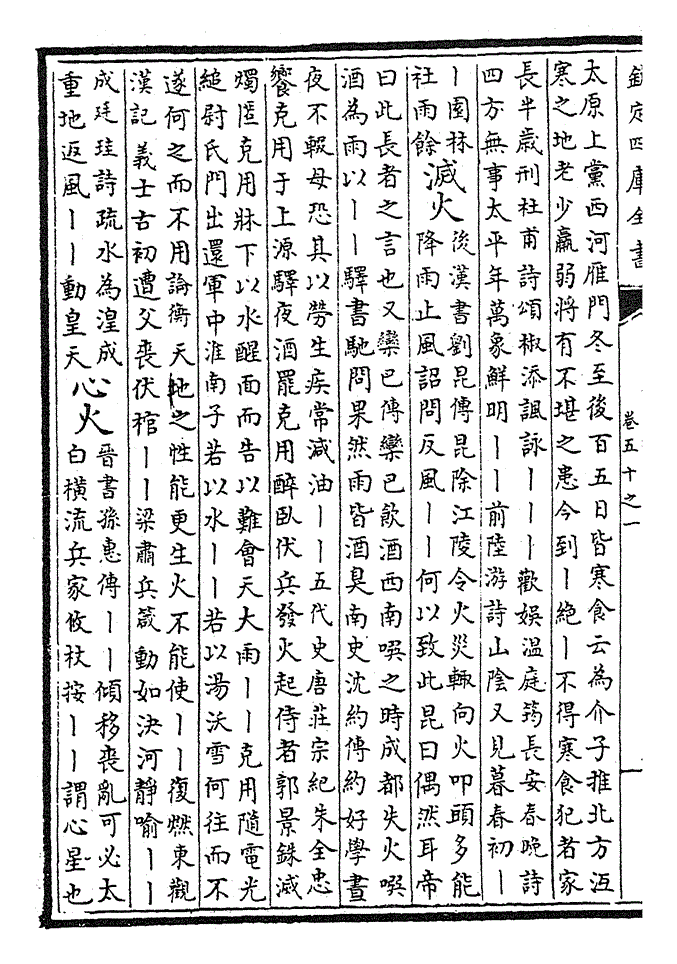 欽定四庫全書
卷五十之一
一
太原上黨西河雁門冬至後百五日皆寒食云為介子推北方沍
寒之地老少羸弱將有不堪之患今到丨絶丨不得寒食犯者家
長半歲刑杜甫詩頌椒添諷詠丨丨丨歡娛溫庭筠長安春晚詩
四方無事太平年萬象鮮明丨丨前陸游詩山陰又見暮春初丨
丨園林
社雨餘
滅火
後漢書劉昆傳昆除江陵令火災輒向火叩頭多能
降雨止風詔問反風丨丨何以致此昆曰偶然耳帝
曰此長者之言也又欒巴傳欒巴飲酒西南噀之時成都失火噀
酒為雨以丨丨驛書馳問果然雨皆酒臭南史沈約傳約好學晝
夜不輟母恐其以勞生疾常減油丨丨五代史唐莊宗紀朱全忠
饗克用于上源驛夜酒罷克用醉臥伏兵發火起侍者郭景銖滅
燭匿克用牀下以水醒面而告以難會天大雨丨丨克用隨電光
縋尉氏門出還軍中淮南子若以水丨丨若以湯沃雪何往而不
遂何之而不用論衡天地之性能更生火不能使丨丨復燃東觀
漢記義士古初遭父喪伏棺丨丨梁肅兵箴動如決河靜喻丨丨
成廷珪詩疏水為湟成
重地返風丨丨動皇天
心火
晉書孫惠傳丨丨傾移喪亂可必太
白橫流兵家攸杖按丨丨謂心星也